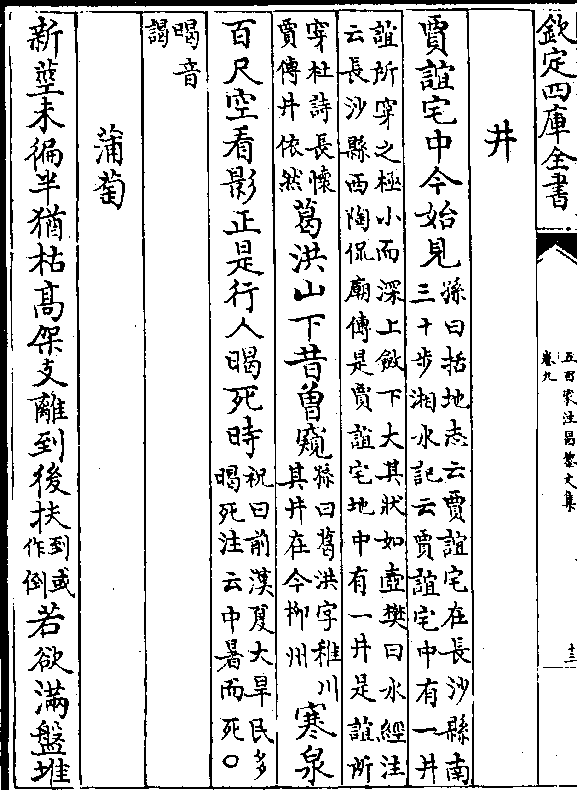 欽定四庫全書
五百家注昌黎文集
卷九
十三
井
賈誼宅中今始見孫曰括地志云賈誼宅在長沙縣南
三十步湘水記云賈誼宅中有一井
誼所穿之極小而深上斂下大其狀如壺樊曰水經注
云長沙縣西陶侃廟傳是賈誼宅地中有一井是誼所
穿杜詩長懷
賈傅井依然葛洪山下昔曽窺孫曰葛洪字稚川
其井在今柳州寒泉
百尺空看影正是行人暍死時祝曰前漢夏大旱民多
暍死注云中暑而死○
暍音
謁
蒲萄
新莖未徧半猶枯髙架支離到後扶到或
作倒若欲滿盤堆